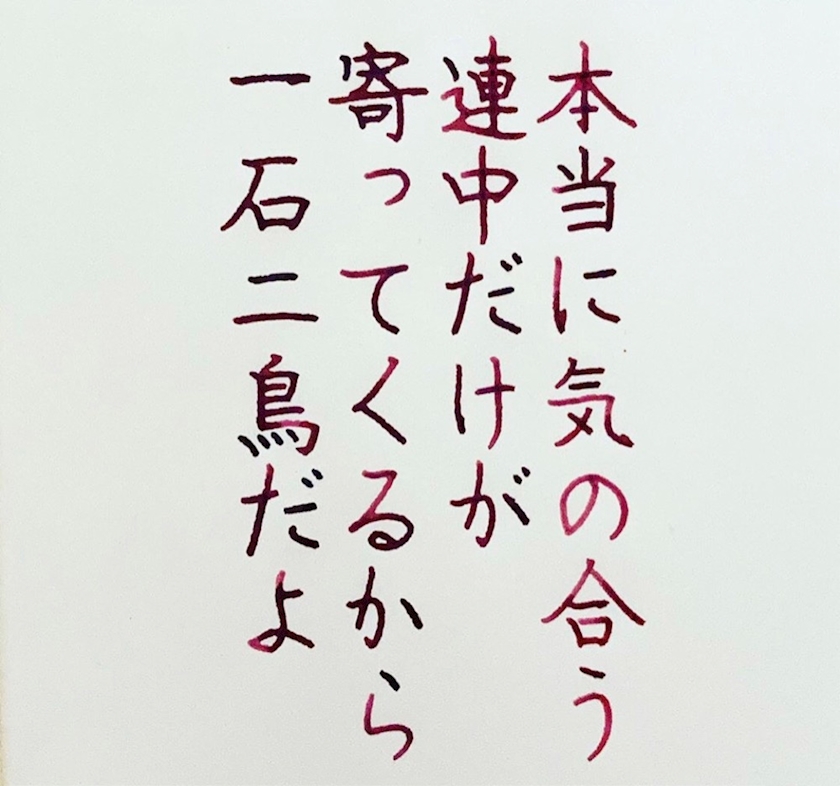 本当に気の合う
連中だけが
寄ってくるから
一石二鳥だよ